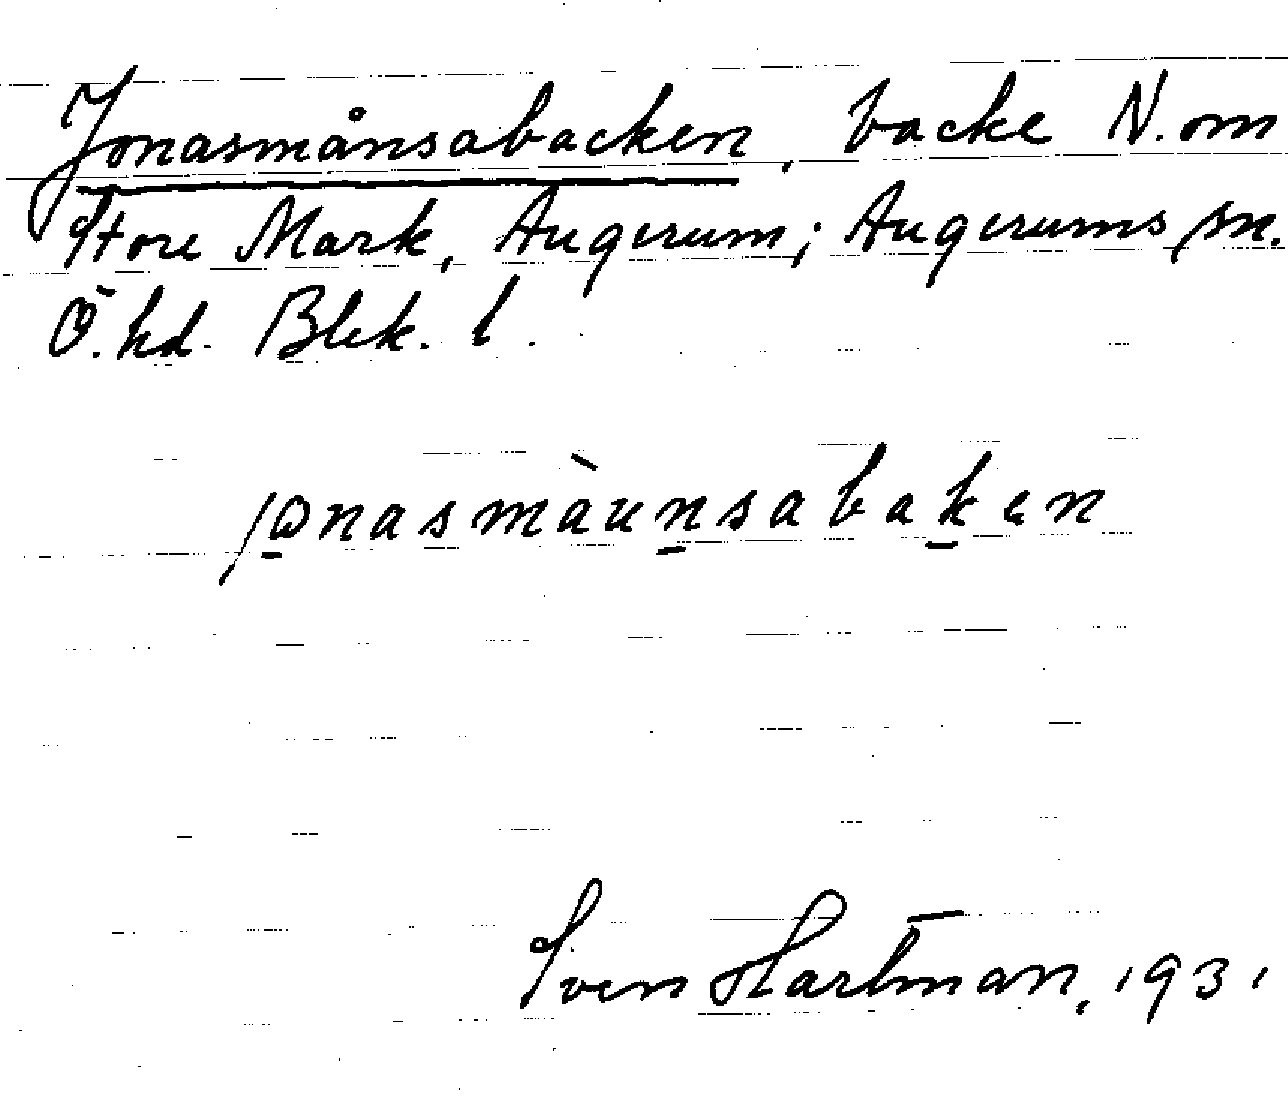 Jonasmånsabacken, backe N. om
Store Mark, Augerum; Augerums sn.
Ö. hd. Blek. l.
jonasmàunsabaken
Sven Hartman, 1931